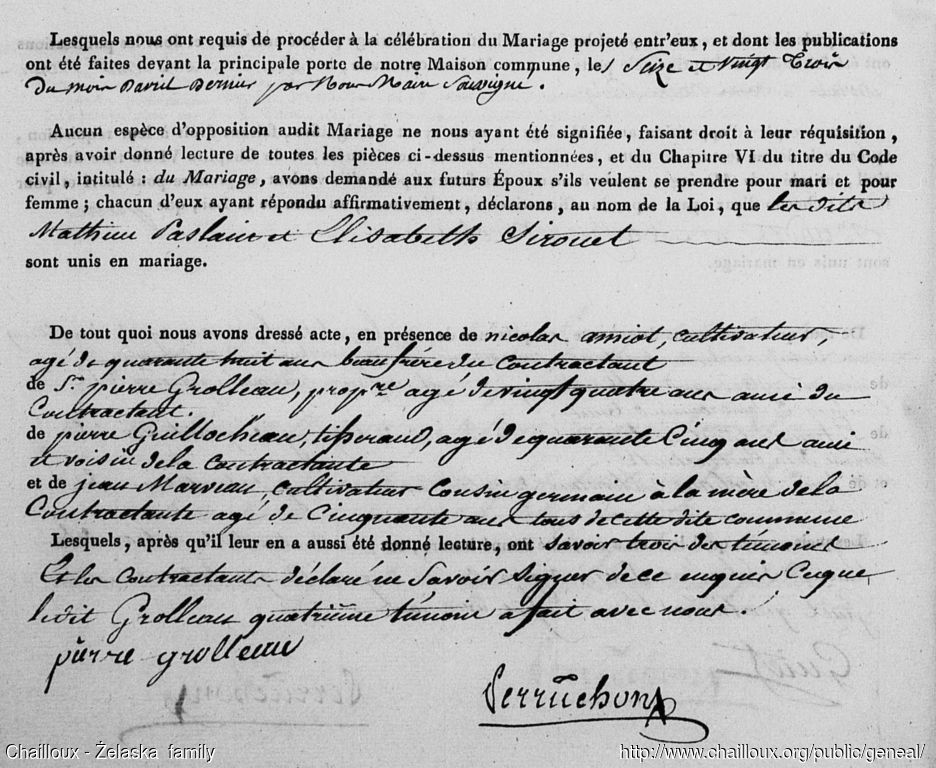 Lesquels nous ont requis de procéder à la célébration du Mariage projeté entr'eux, et dont les publications
ont été faites devant la principale porte de notre Maison commune, les Seize et vingt trois
Du mois Davril Dernier par Nous Maire
Aucun espèce d'opposition audit Mariage ne nous ayant été signifiée, faisant droit à leur réquisition,
après avoir donné lecture de toutes les pièces ci-dessus mentionnées, et du Chapitre VI du titre du Code
civil, intitulé : du Mariage, avons demandé aux futurs Époux s'ils veulent se prendre pour mari et pour
femme ; chacun d'eux ayant répondu affirmativement, déclarons, au nom de la Loi, que les dits
Mathieu et Elisabeth Sirouet
sont unis en mariage.
De tout quoi nous avons dressé acte, en présence de nicolas amiot, cultivateur,
agé de quarante huit ans beaufrère du contractant
de Sr. pierre Grolleau, propre agé de vingt quatre ans ami du
Contractant.
de pierre Guillocheau, tisserand, agé de quarante Cinq ans ami
et voisin dela contractante
et de jean Marveau, cultivateur Cousin germain à la mère de la
Contractante agé de Cinquante ans tous de cette dite commune
Lesquels, après qu'il leur en a aussi été donné lecture, ont savoir trois des témoins
Et les contractants déclaré ne Savoir Signer de ce enquis Ceque
ledit Grolleau quatrième témoin a fait avec nous.
pierre grolleau
Perruchon
Chailloux - Żelaska family
http://www.chailloux.org/public/geneal/